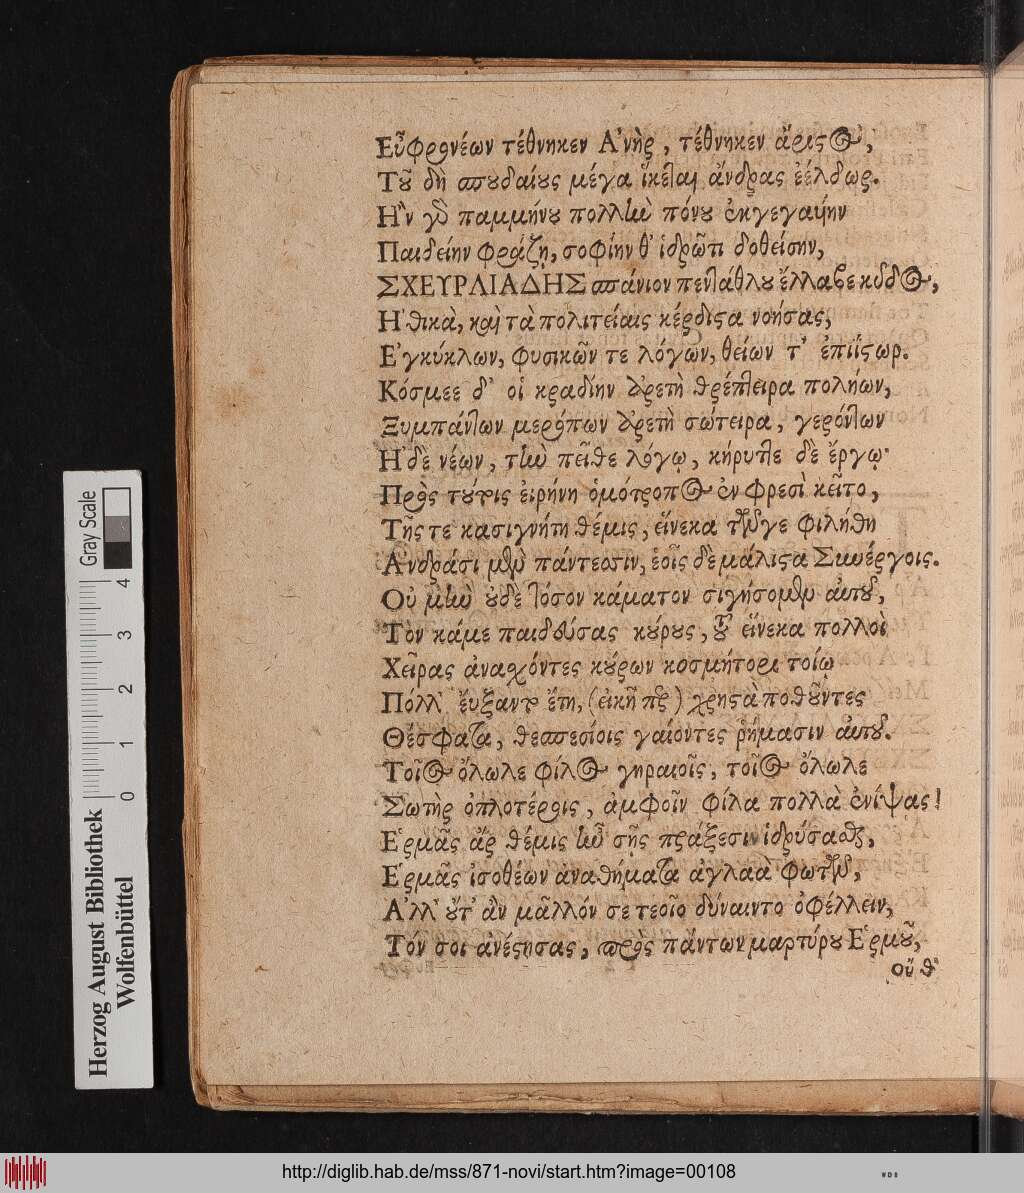 Εὖφρονέων τέθνηκεν Ἀνὴρ, τέθνηκεν ἄριςος,
Τοῦ δὴ σπουδαίους μέγα ἵκεται ἄνδρας ἐέλδωρ.
Ἢν γὰρ παμμήνου πολλὴν πόνου ἐκγεγαυῖην
Παιδείην φράζῃ, σοφίην θ' ἱδρῶτι δοθείσην,
ΣΧΕΥΡΛΙΑΔΗΣ σπάνιον πενταάθλου ἔλλαβε κυδος,
Ἠθικὰ, καὶ τὰ πολιτείαις κέρδιςα νοήσας,
Ἐγκύκλων, φυσικῶν τε λόγων, θείων τ' ἐπιίςωρ.
Κόσμεε δ' οἱ κραδίην ἀρετὴ θρέπτειρα πολήων,
Ξυμπάντων μερόπων ἀρετὴ σώτειρα, γερόντων
Ἠδὲ νέων, τὴν πεῖθε λόγῳ, κήρυττε δὲ ἔργῳ·
Πρὸς τούτοις εἰρήνη ὁμότροπος ἐν φρεσὶ κεῖτο,
Τῆς τε κασιγνήτη θέμις, εἵνεκα τῶν γε φιλήθη
Ἀνδράσι μὲν πάντεσσιν, ἑοῖς δὲ μάλιςα Συνέργοις.
Οὐ μὴν οὐδὲ τόσον κάματον σιγήσομεν αὐτοῦ,
Τὸν κάμε παιδεύσας κούρους, οὗ εἵνεκα πολλοὶ
Χεῖρας ἀνασχόντες κούρων κοσμήτορι τοίῳ
Πόλλ' ἔυξαντο ἔτη, (εἰκῆ περ) χρηςὰ ποθοῦντες
Θέσφατα, θεσπεσίοις γαίοντες ῥήμασιν αὐτοῦ.
Τοῖος ὄλωλε φίλος γηραιοῖς, τοῖος ὄλωλε
Σωτὴρ ὁπλοτέροις, ἀμφοῖν φίλα πολλὰ ἐνίψας!
Ἑρμᾶς ἄρ θέμις ἦν σῇς πράξεσιν ἱδρύσασθαι,
Ἑρμᾶς ἰσοθέων ἀναθήματα ἀγλαὰ φωτῶν,
Ἀλλ' οὔτ' ἂν μᾶλλόν σε τεοῖο δύναιντο ὀφέλλειν,
Τόν σοι ἀνέςησας, πρὸς πάντων μαρτύρου Ἑρμοῦ,
Οὔ θ'
Gray Scale
0 1 2 3 4
Herzog August Bibliothek
Wolfenbüttel
http://diglib.hab.de/mss/871-novi/start.htm?image=00108